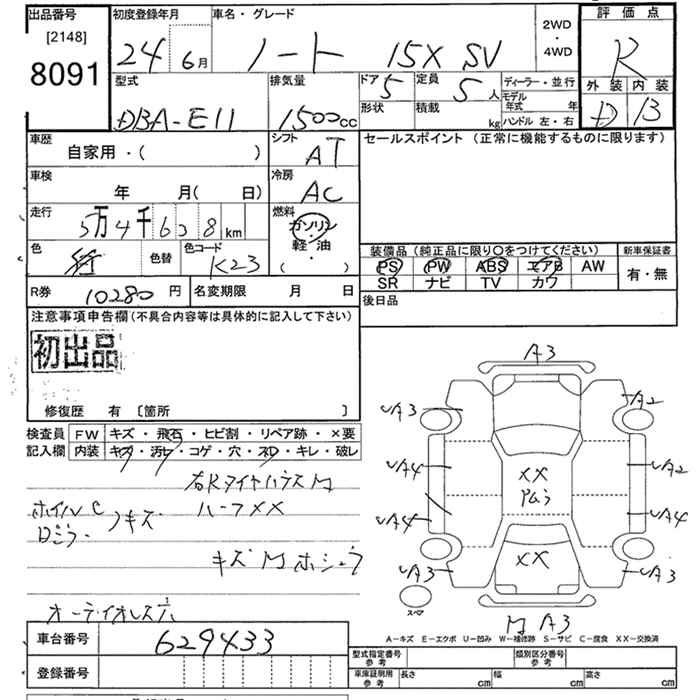 出品番号
[2148]
8091
初度登録年月
24 6月
車名・グレード
ノート 15X SV
2WD
・
4WD
評価点
R
外装 内装
D B
型式
DBA-E11
排気量
1500cc
ドア 5
定員 5人
形状
積載 kg
ディーラー・並行
モデル年式 年
ハンドル 左・右
車歴
自家用・( )
シフト
AT
セールスポイント (正常に機能するものに限ります)
車検
年 月( 日)
冷房
AC
走行
5万4千638km
燃料
ガソリン
軽油
( ・ )
色
色替
色コード
K23
装備品(純正品に限り○をつけてください)
PS PW ABS エアB AW
SR ナビ TV カワ
新車保証書
有・無
R券 10280円
名変期限 月 日
後日品
注意事項申告欄(不具合内容等は具体的に記入して下さい)
初出品
修復歴 有 [箇所 ]
検査員
記入欄
FW キズ・飛石・ヒビ割・リペア跡・×要
内装 キズ・汚レ・コゲ・穴・スレ・キレ・破レ
ホイルC
ハーフXX
Dミラー
キズ
A3
A3
A2
A4
A2
XX
A4
A4
XX
A3
A3
スペア
A3
A-キズ E-エクボ U-凹み W-補修跡 S-サビ C-腐食 XX-交換済
車台番号 629433
登録番号
型式指定番号
参考
類別区分番号
参考
車庫証明用
参考
長さ cm 幅 cm 高さ cm